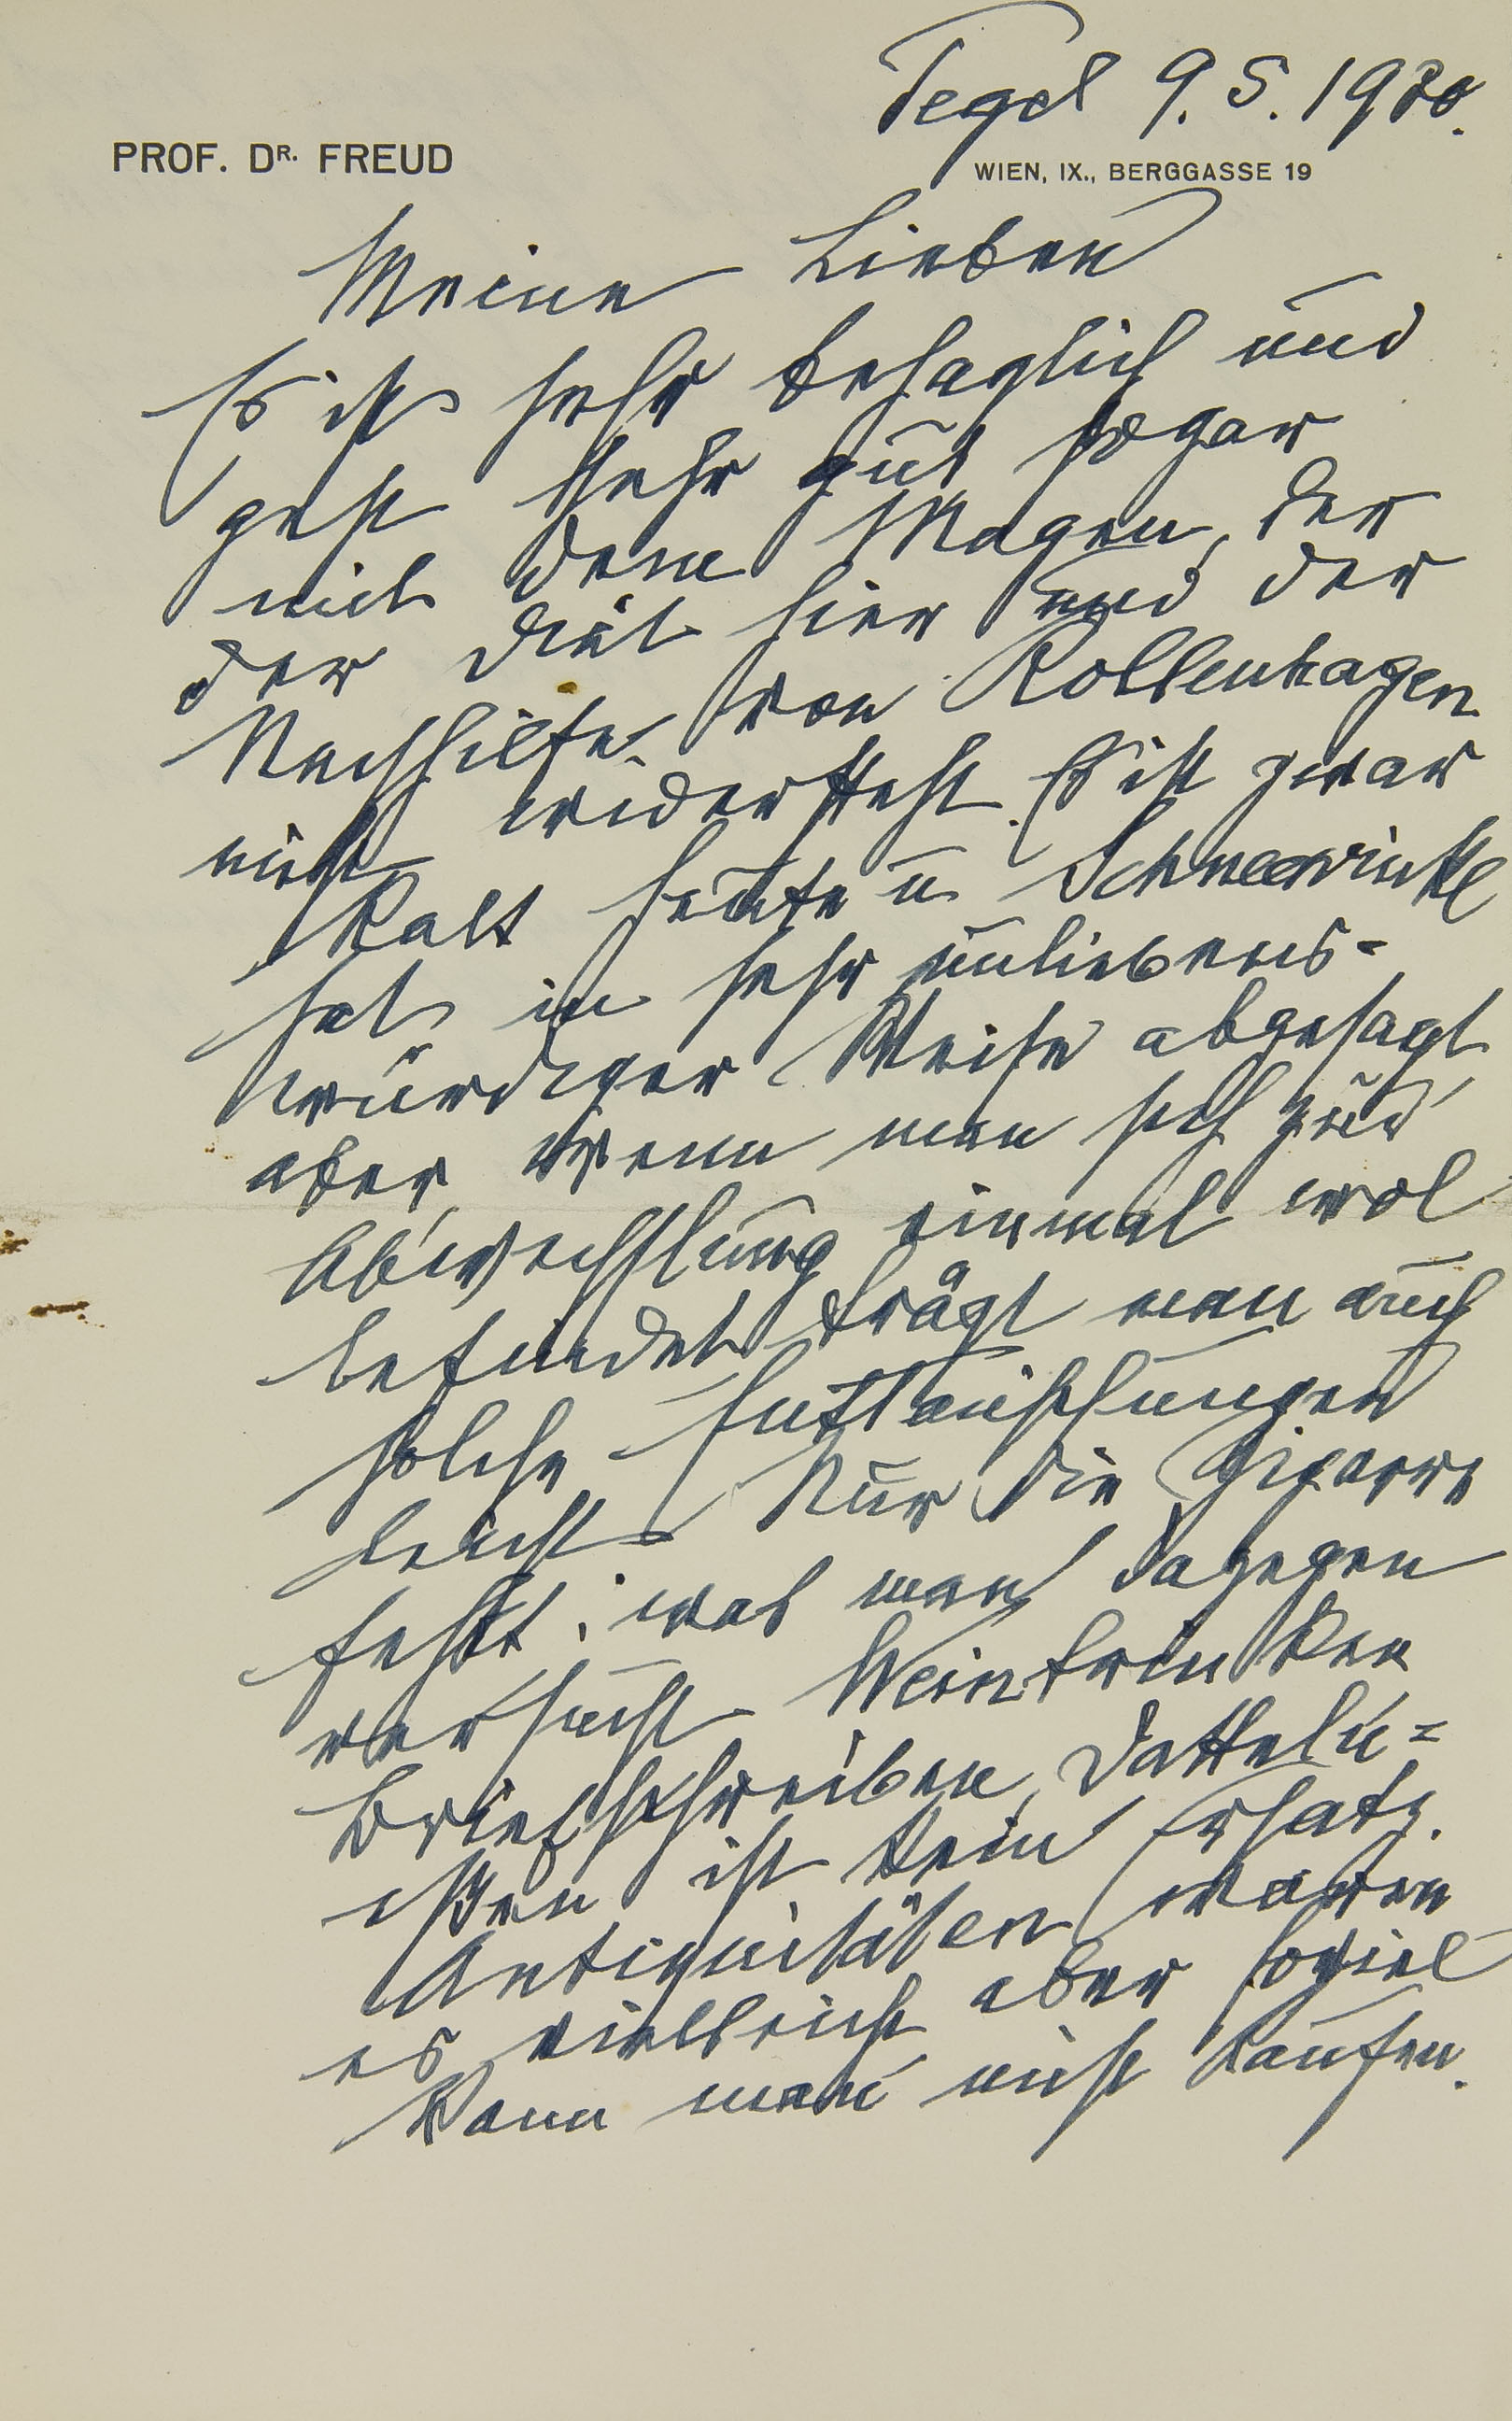 Tegel 9.5.1930.
PROF. DR. FREUD
WIEN, IX., BERGGASSE 19
Meine Lieben
Es ist sehr behaglich und
geht sehr gut sogar
mit dem Magen, der
der Diät hier und der
Nachhilfe von Rollenhagen
nicht widersteht. Es ist zwar
kalt heute u Schneewinkl
hat in sehr unliebens-
würdiger Weise abgesagt
aber wenn man sich zur
Abwechslung einmal wol
befindet trägt man auch
solche Enttäuschungen
leicht. Nur die Zigarre
fehlt; was man dagegen
versucht Weintrinken
Briefschreiben, Datteln-
essen ist kein Ersatz.
Antiquitäten wären
es vielleicht aber soviel
kann man nicht kaufen.